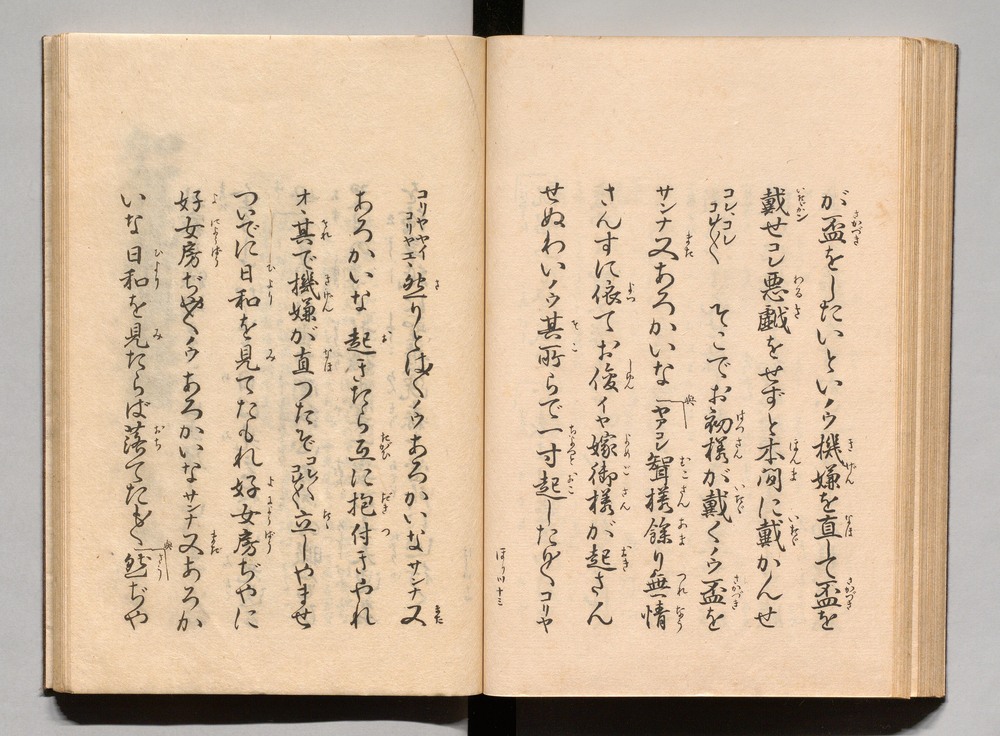 が盃をしたいといノウ機嫌を直して盃を
戴せコレ悪戯をせずと本間に戴かんせ
コレ、コレコレ〱 そこでお初様が戴くノウ盃を
サンナ又あろかいな ヤアコレ聟様餘り無情
さんすに依てお俊イヤ嫁御様が起さん
せぬわいノウ其所らで一寸起したも〱コリヤ
コリヤヤイコリヤエヽ然りとは〱ノウあろかいなサンナ又
あろかいな 起きたら互に抱付きやれ
オヽ其で機嫌が直つたぞコレ〱立しやませ
ついでに日和を見てたもれ好女房ぢやに
好女房ぢや〱ノウあろかいなサンナ又あろか
いな日和を見たらば落てたも〱 然ぢや